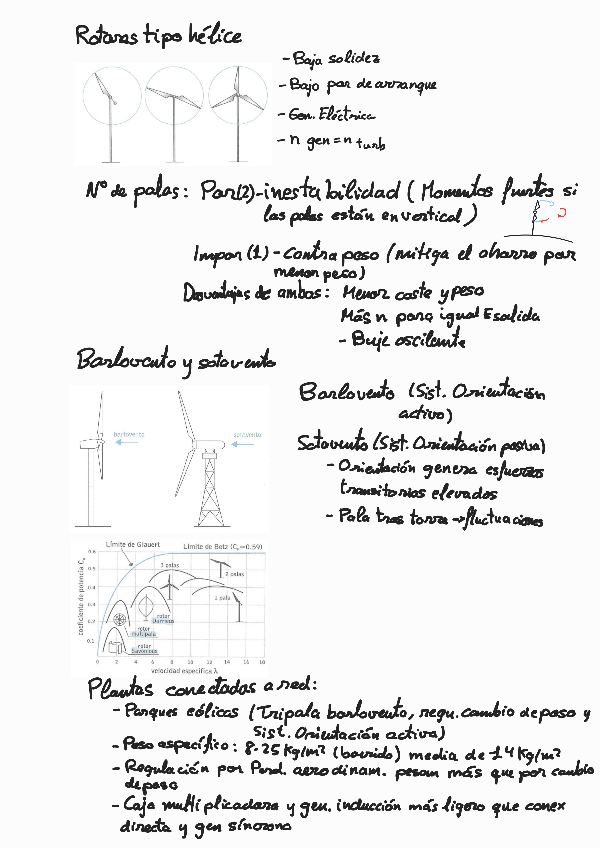 Rotores tipo hélice
- Baja solidez
- Bajo par de arranque
- Gen. Eléctrica
- n gen = n turb
Nº de palas: Par(2)-inestabilidad (Momentos fuertes si
las palas están en vertical)
Impar (1) - Contra peso (mitiga el ahorro por
menor peso)
Desventajas de ambos: Menor coste y peso
Más n para igual E salida
- Buje oscilante
Barlovento y sotavento
barlovento
sotavento
Barlovento (Sist. Orientación
activo)
Sotavento (Sist. Orientación pasiva)
- Orientación genera esfuerzos
transitorios elevados
- Pala tras torre → fluctuaciones
Límite de Glauert
Límite de Betz (Cₚ=0.59)
coeficiente de potencia Cₚ
0.6
0.5
0.4
0.3
0.2
0.1
3 palas
2 palas
1 pala
rotor
Darrieus
rotor
multipala
rotor
Savonious
0 2 4 6 8 10 12 14 16 18
velocidad específica λ
Plantas conectadas a red:
- Parques eólicos (Tripala barlovento, regu. cambio de paso y
Sist. Orientación activa)
- Peso específico: 8-25 kg/m² (barrido) media de 14 kg/m²
- Regulación por Perd. aerodinam. pesan más que por cambio
de paso
- Caja multiplicadora y gen. inducción más ligero que conex
directa y gen síncrono